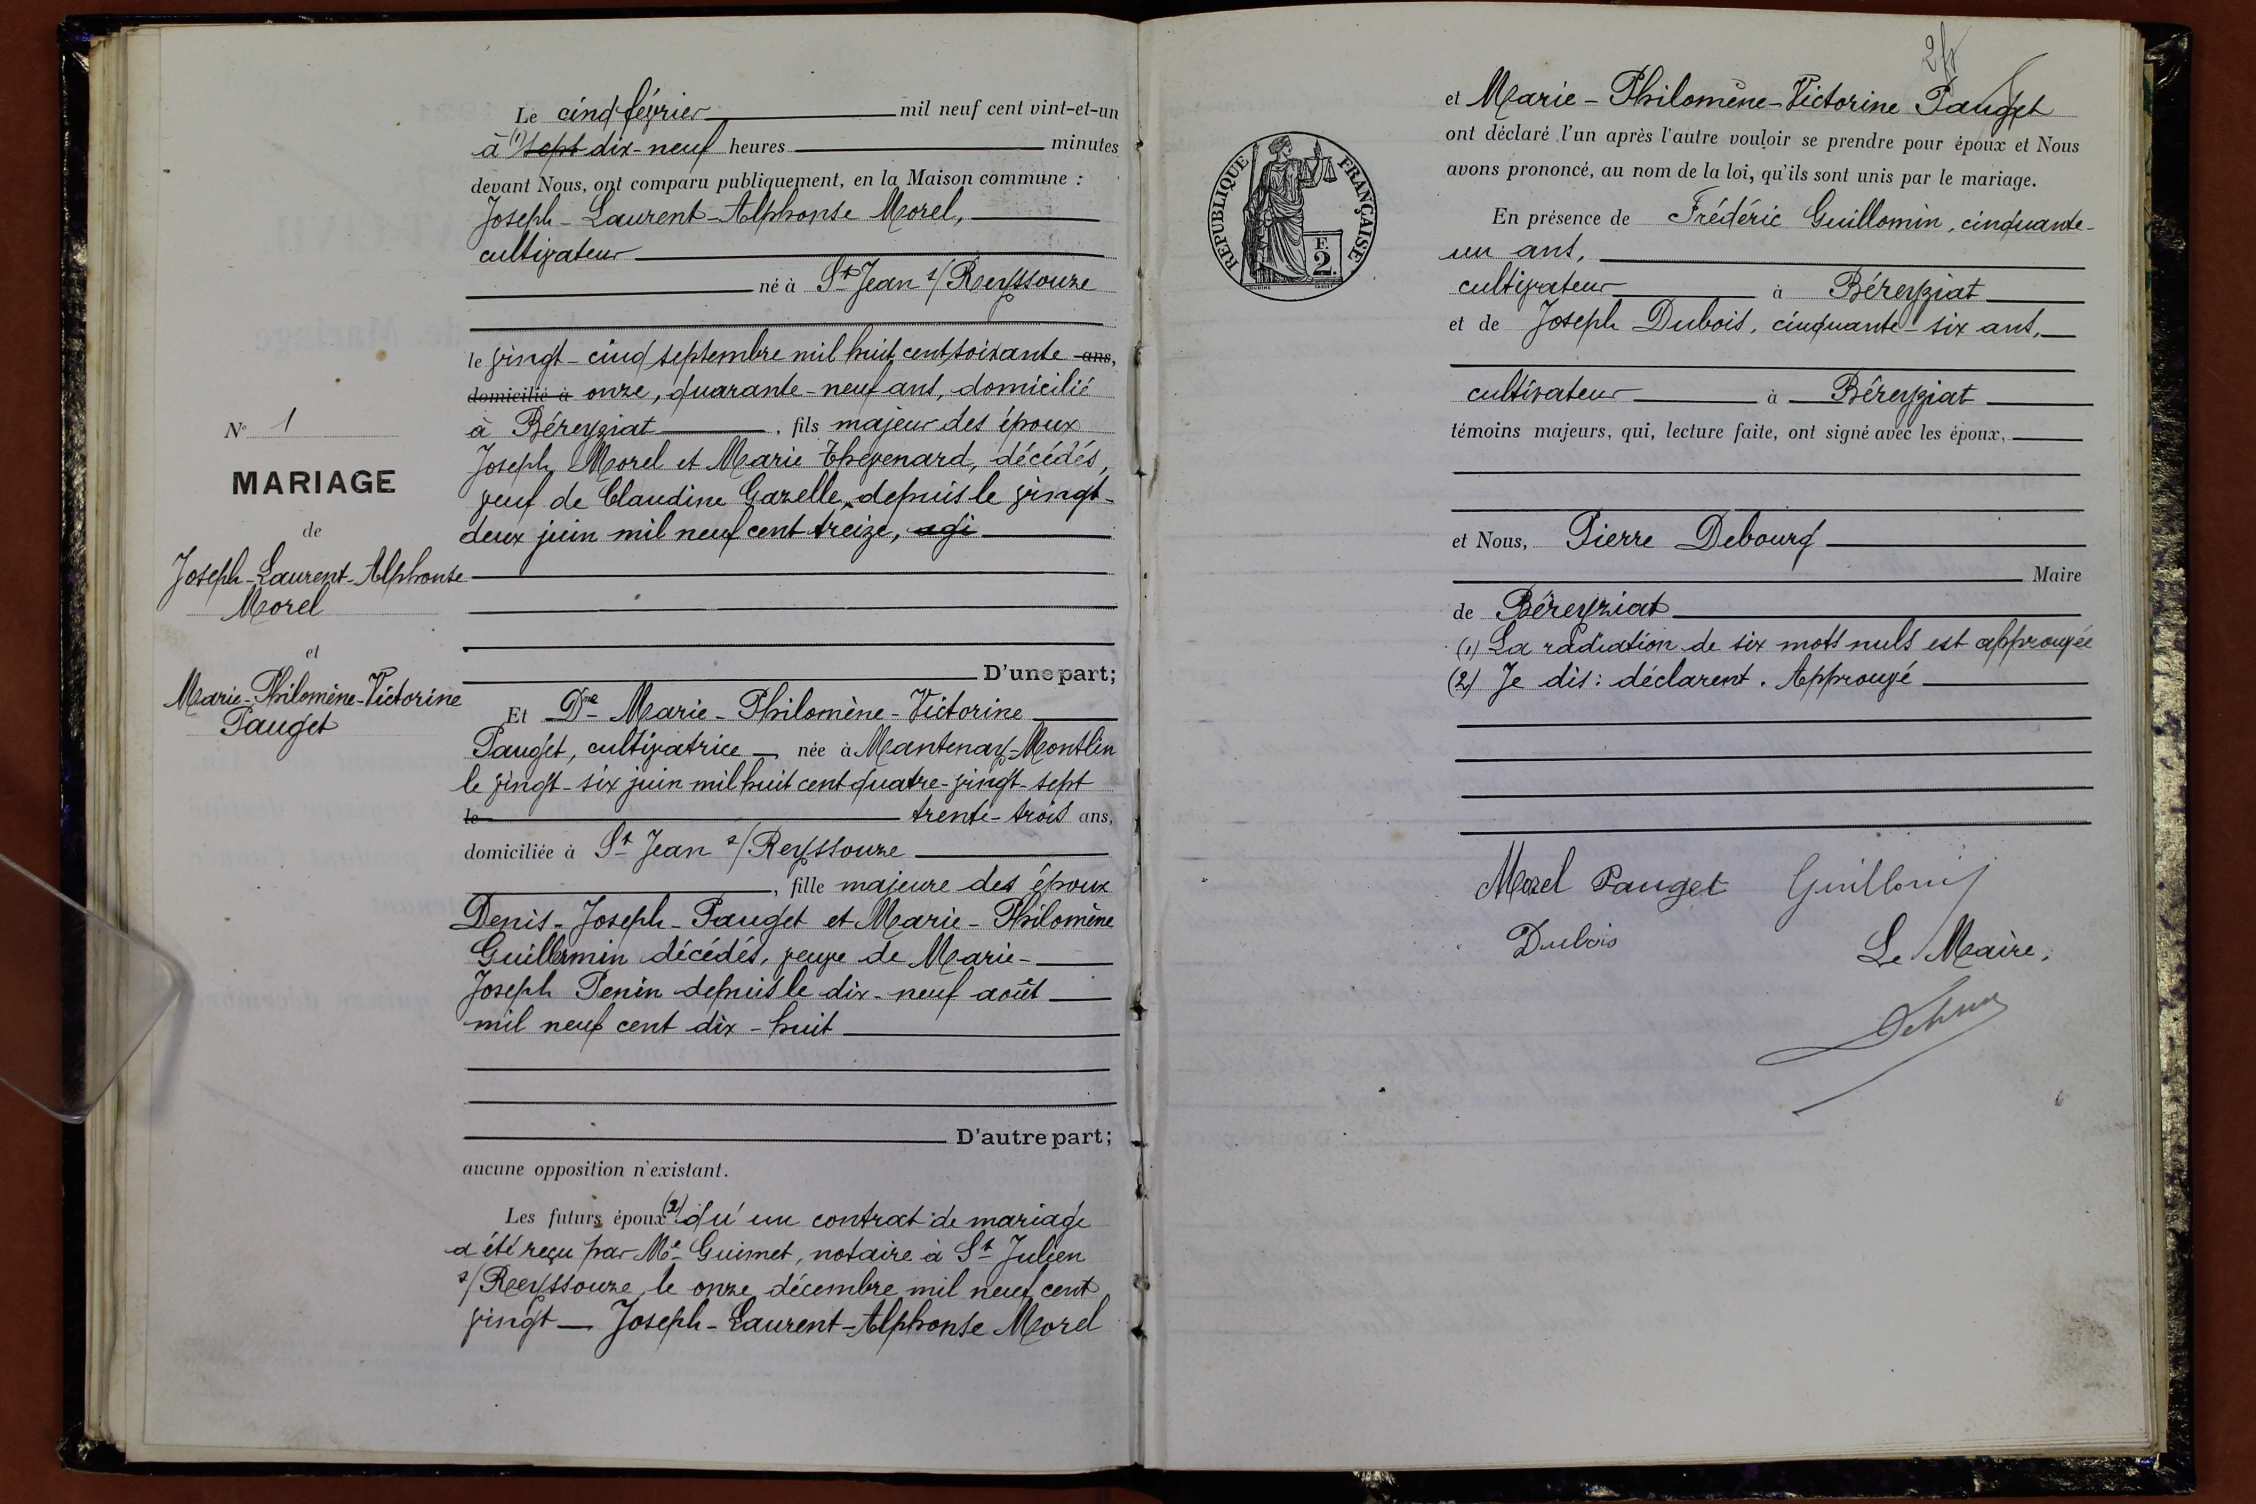 Le cinq février mil neuf cent vint-et-un
à (1) sept dix-neuf heures minutes
devant Nous, ont comparu publiquement, en la Maison commune :
Joseph-Laurent-Alphonse Morel,
cultivateur
né à St Jean s/Reyssouze
le vingt-cinq septembre mil huit cent soixante ans,
domicilié à onze, quarante-neuf ans, domicilié
à Béreyziat, fils majeur des époux
Joseph Morel et Marie Thévenard, décédés,
veuf de Claudine Gazelle, depuis le vingt-
deux juin mil neuf cent treize, agi
D'une part;
Et Dme Marie-Philomène-Victorine
Pauget, cultivatrice née à Mantenay-Montlin
le vingt-six juin mil huit cent quatre-vingt-sept
le trente-trois ans,
domiciliée à St Jean s/Reyssouze
, fille majeure des époux
Denis-Joseph-Pauget et Marie-Philomène
Guillermin décédés, veuve de Marie-
Joseph Penin depuis le dix-neuf août
mil neuf cent dix-huit
D'autre part;
aucune opposition n'existant.
Les futurs époux (2) qu'un contrat de mariage
a été reçu par Me Guimet, notaire à St Julien
s/Reyssouze, le onze décembre mil neuf cent
vingt Joseph-Laurent-Alphonse Morel
N° 1
MARIAGE
de
Joseph-Laurent-Alphonse
Morel
et
Marie-Philomène-Victorine
Pauget
REPUBLIQUE FRANÇAISE
F.
2.
et Marie-Philomène-Victorine Pauget
ont déclaré l'un après l'autre vouloir se prendre pour époux et Nous
avons prononcé, au nom de la loi, qu'ils sont unis par le mariage.
En présence de Frédéric Guillomin, cinquante-
un ans,
cultivateur à Béreyziat
et de Joseph Dubois, cinquante-six ans,
cultivateur à Béreyziat
témoins majeurs, qui, lecture faite, ont signé avec les époux,
et Nous, Pierre Debourg
Maire
de Béreyziat
(1) La radiation de six mots nuls est approuvée
(2) Je dis : déclarent. Approuvé
Morel Pauget Guillomin
Dubois Le Maire,